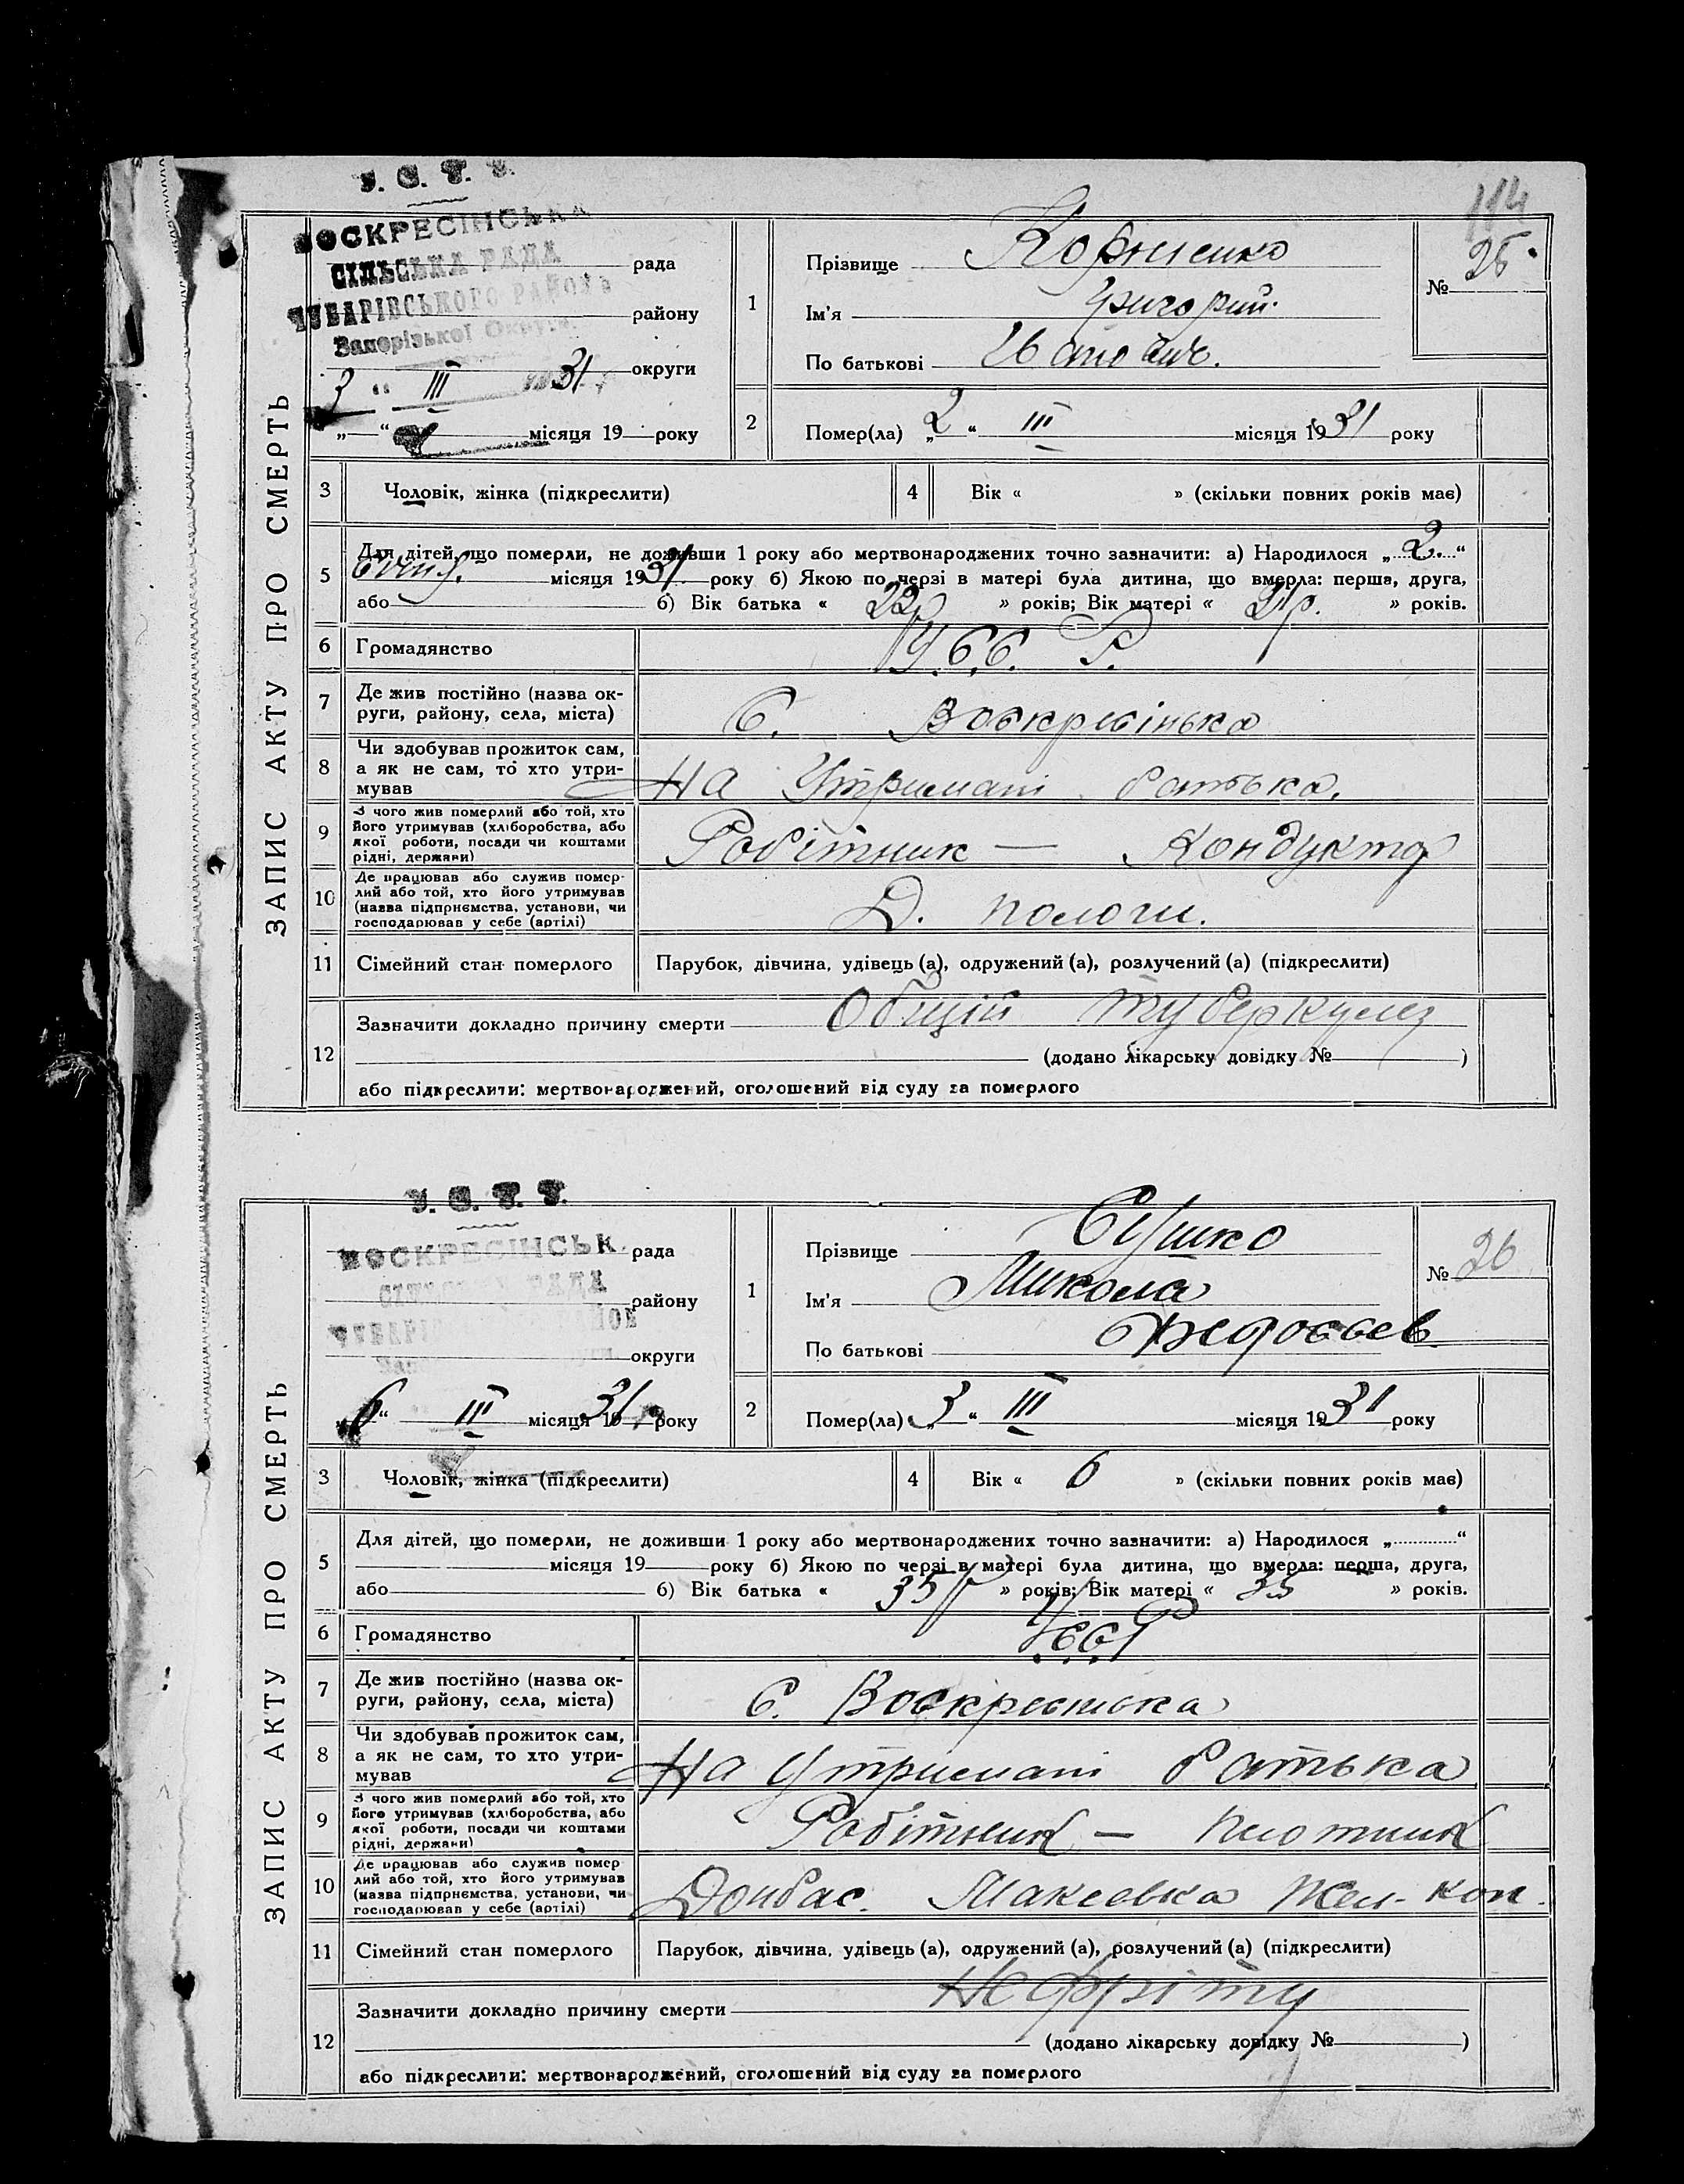 114
У. С. Р. Р.
ВОСКРЕСІНСЬКА
СІЛЬСЬКА РАДА
ЧУБАРІВСЬКОГО РАЙОНУ
Запорізької Округи
рада
району
округи
3 " III 31
„ “ місяця 19 року
ЗАПИС АКТУ ПРО СМЕРТЬ
1
Прізвище Корниенко
Ім'я Григорий
По батькові
№ 25.
2 Помер(ла) „2“ III місяця 1931 року
3 Чоловік, жінка (підкреслити)
4 Вік « » (скільки повних років має)
5 Для дітей, що померли, не доживши 1 року або мертвонароджених точно зазначити: а) Народилося „2.“
місяця 1931 року б) Якою по черзі в матері була дитина, що вмерла: перша, друга,
або б) Вік батька « 22р » років; Вік матері « 21р. » років.
6 Громадянство У.С.С. Р.
7 Де жив постійно (назва ок-
руги, району, села, міста) С. Воскресінька
8 Чи здобував прожиток сам,
а як не сам, то хто утри-
мував На Утримані батька.
9 З чого жив померлий або той, хто
його утримував (хліборобства, або
якої роботи, посади чи коштами
рідні, держави) Робітник — Кондуктор
10 Де працював або служив помер-
лий або той, хто його утримував
(назва підприємства, установи, чи
господарював у себе (артілі) Д. Пологи.
11 Сімейний стан померлого Парубок, дівчина, удівець (а), одружений (а), розлучений (а) (підкреслити)
12 Зазначити докладно причину смерти Общій туберкулез
(додано лікарську довідку № )
або підкреслити: мертвонароджений, оголошений від суду за померлого
У. С. Р. Р.
ВОСКРЕСІНСЬК
СІЛЬСЬКА РАДА
рада
району
округи
„6“ III місяця 31 року
ЗАПИС АКТУ ПРО СМЕРТЬ
1
Прізвище Сушко
Ім'я Микола
По батькові
№ 26
2 Помер(ла) „3“ III місяця 1931 року
3 Чоловік, жінка (підкреслити)
4 Вік « 6 » (скільки повних років має)
5 Для дітей, що померли, не доживши 1 року або мертвонароджених точно зазначити: а) Народилося „ “
місяця 19 року б) Якою по черзі в матері була дитина, що вмерла: перша, друга,
або б) Вік батька « 35р » років; Вік матері « 35 » років.
6 Громадянство УССР
7 Де жив постійно (назва ок-
руги, району, села, міста) С. Воскресенька
8 Чи здобував прожиток сам,
а як не сам, то хто утри-
мував На Утримані батька
9 З чого жив померлий або той, хто
його утримував (хліборобства, або
якої роботи, посади чи коштами
рідні, держави) Робітник — Плотник
10 Де працював або служив помер-
лий або той, хто його утримував
(назва підприємства, установи, чи
господарював у себе (артілі) Донбас. Макеевка
11 Сімейний стан померлого Парубок, дівчина, удівець (а), одружений (а), розлучений (а) (підкреслити)
12 Зазначити докладно причину смерти Нефріту
(додано лікарську довідку № )
або підкреслити: мертвонароджений, оголошений від суду за померлого